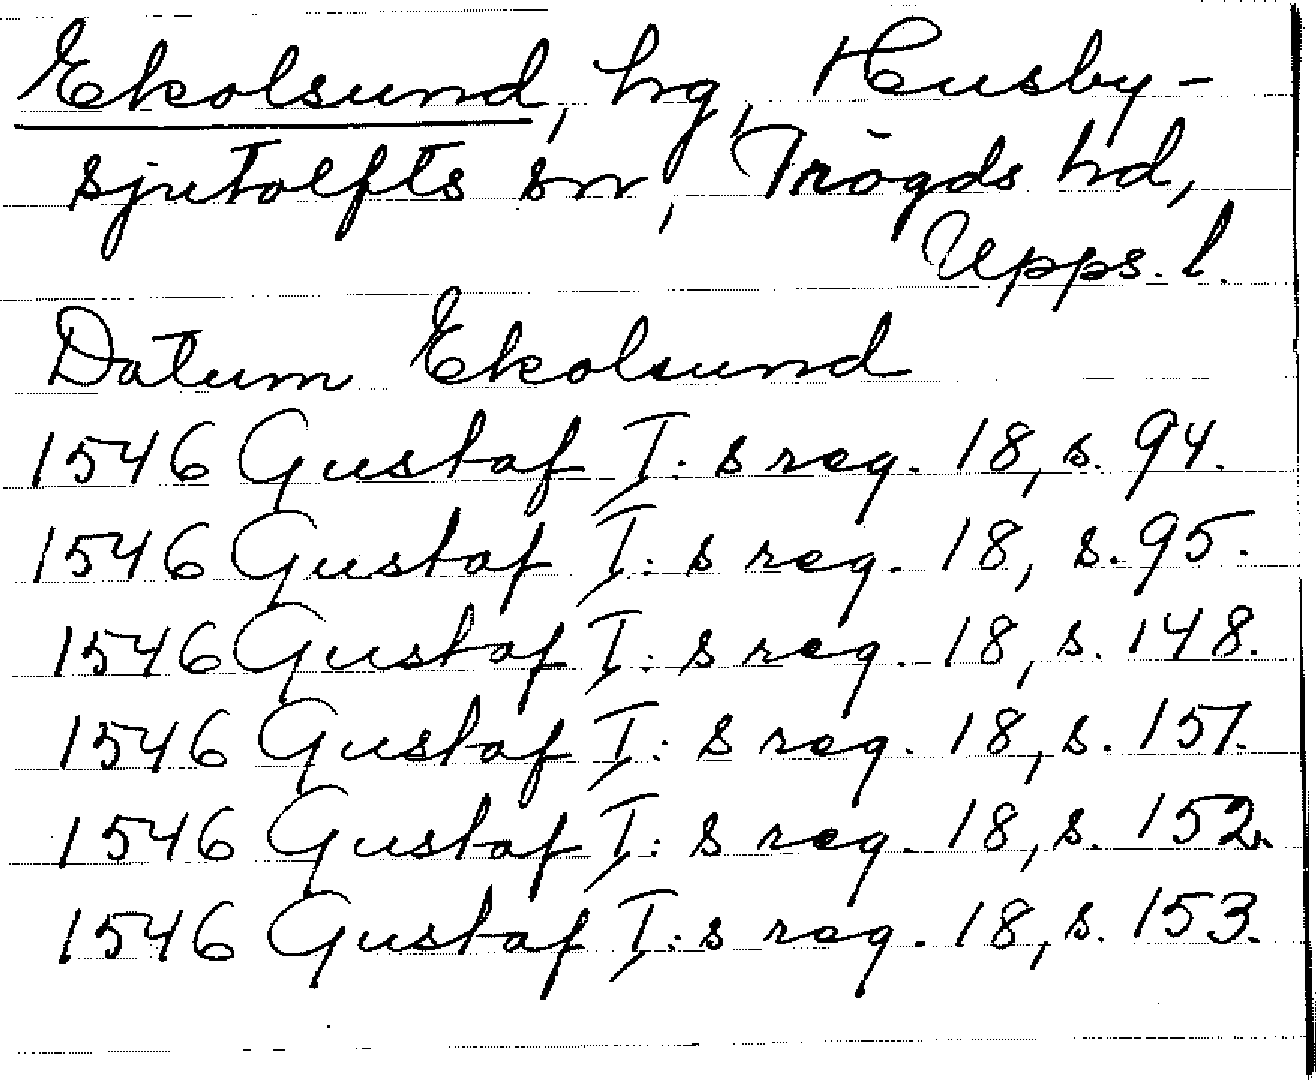 Ekolsund, hg, Husby-
sjutolfts sn, Trögds hd,
Upps. l.
Datum Ekolsund
1546 Gustaf I:s reg. 18, s. 94.
1546 Gustaf I:s reg. 18, s. 95.
1546 Gustaf I:s reg. 18, s. 148.
1546 Gustaf I:s reg. 18, s. 151.
1546 Gustaf I:s reg. 18, s. 152.
1546 Gustaf I:s reg. 18, s. 153.